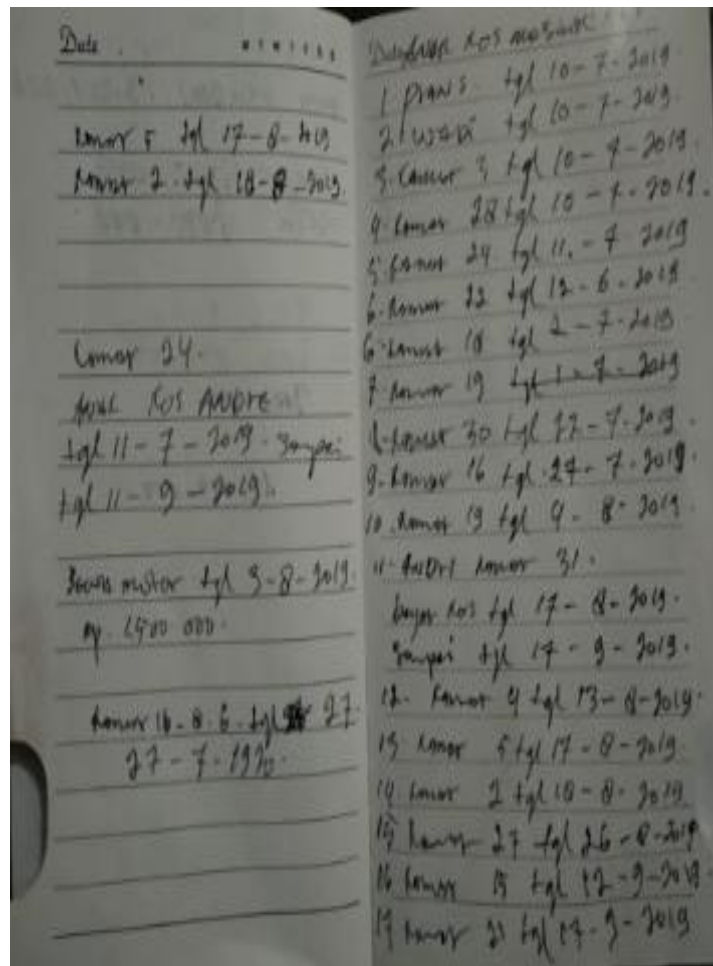 Date
Kamar 5 tgl 17-8-2019
Kamar 2 tgl 18-8-2019.
Kamar 24.
ANAK KOS ANDRE
tgl 11-7-2019 sampai
tgl 11-9-2019.
motor tgl 3-8-2019.
Kamar 16-8-6-tgl 27
27-7-1920.
Date ANAK KOS
1 tgl 10-7-2019
2 tgl 10-7-2019.
3. Kamar 3 tgl 10-7-2019.
4. Kamar 28 tgl 10-7-2019.
5. Kamar 24 tgl 11-7 2019
6. Kamar 22 tgl 12-6-2019
6. Kamar 18 tgl 2-7-2019
7 Kamar 19 tgl 1-7-2019
8. Kamar 30 tgl 22-7-2019.
9. Kamar 16 tgl 27-7-2019.
10. Kamar 19 tgl 4-8-2019
11. ANDRI Kamar 31.
bayar kos tgl 17-8-2019.
sampai tgl 17-9-2019.
12. Kamar 4 tgl 13-8-2019.
13 Kamar 5 tgl 17-8-2019
14 Kamar 2 tgl 18-8-2019
15 Kamar 27 tgl 26-8-2019
16 Kamar 15 tgl 12-9-2019
17 Kamar 21 tgl 17-9-2019